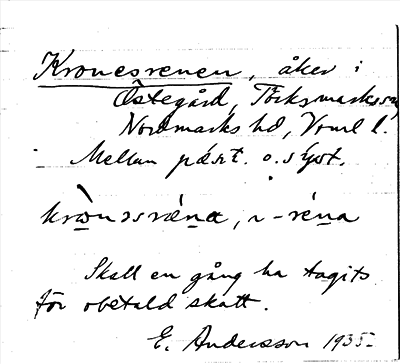 Kronesrenen, åker i
Östegård, Törksmarks sn,
Nordmarks hd, Vrml l.
Mellan präst. o. syst.
krònəsrǽna, ɩ -réna
Skall en gång ha tagits
för obetald skatt.
E. Andersson 1935